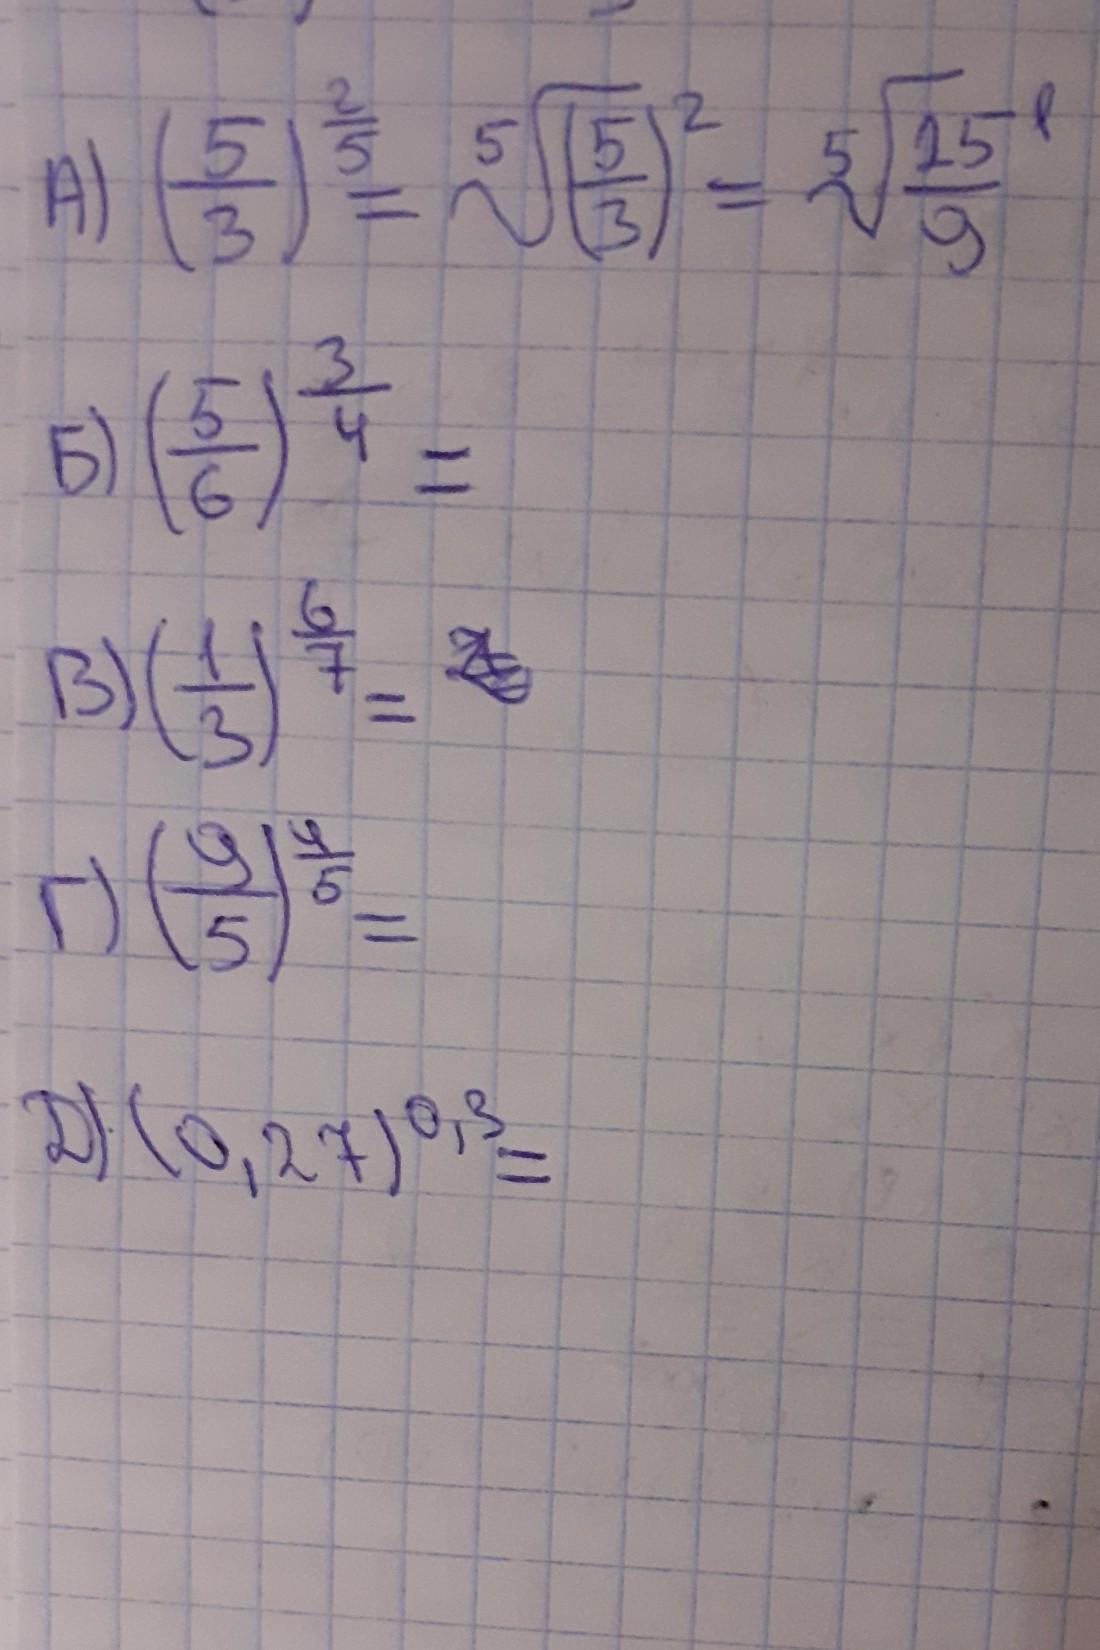 А) (5/3)^(2/5) = ⁵√(5/3)² = ⁵√25/9
Б) (5/6)^(3/4) =
В) (1/3)^(6/7) =
Г) (9/5)^(4/5) =
Д) (0,27)^(0,3) =